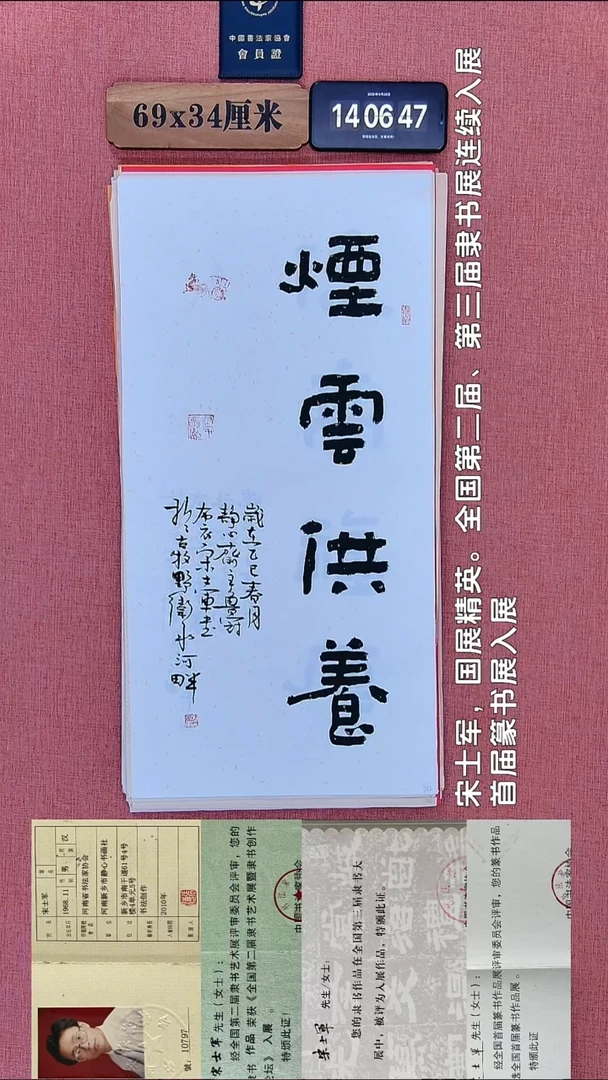 中國書法家協會
會員證
69x34厘米
14 06 47
煙雲供養
歲在乙巳春月
靜心齋主
布衣宋士軍書
於古牧野衛水河畔
宋士军，国展精英。全国第二届、第三届隶书展连续入展
首届篆书展入展
宋士军
1968.11
男
汉
河南省书法家协会
河南新乡市静心书画社
新乡市南干道61号4号
楼4单元5号
书法创作
2010年
號：10797
宋士军 先生（女士）：
经全国第二届隶书艺术展评审委员会评审，您的
隶书 作品 荣获《全国第二届隶书艺术展暨隶书创作
论坛》入展 。
特颁此证！
宋士军 先生/女士：
您的隶书作品在全国第三届隶书大
展中，被评为入展作品，特颁此证。
士军 先生（女士）：
经全国首届篆书作品展评审委员会评审，您的篆书作品
全国首届篆书作品展。
特颁此证